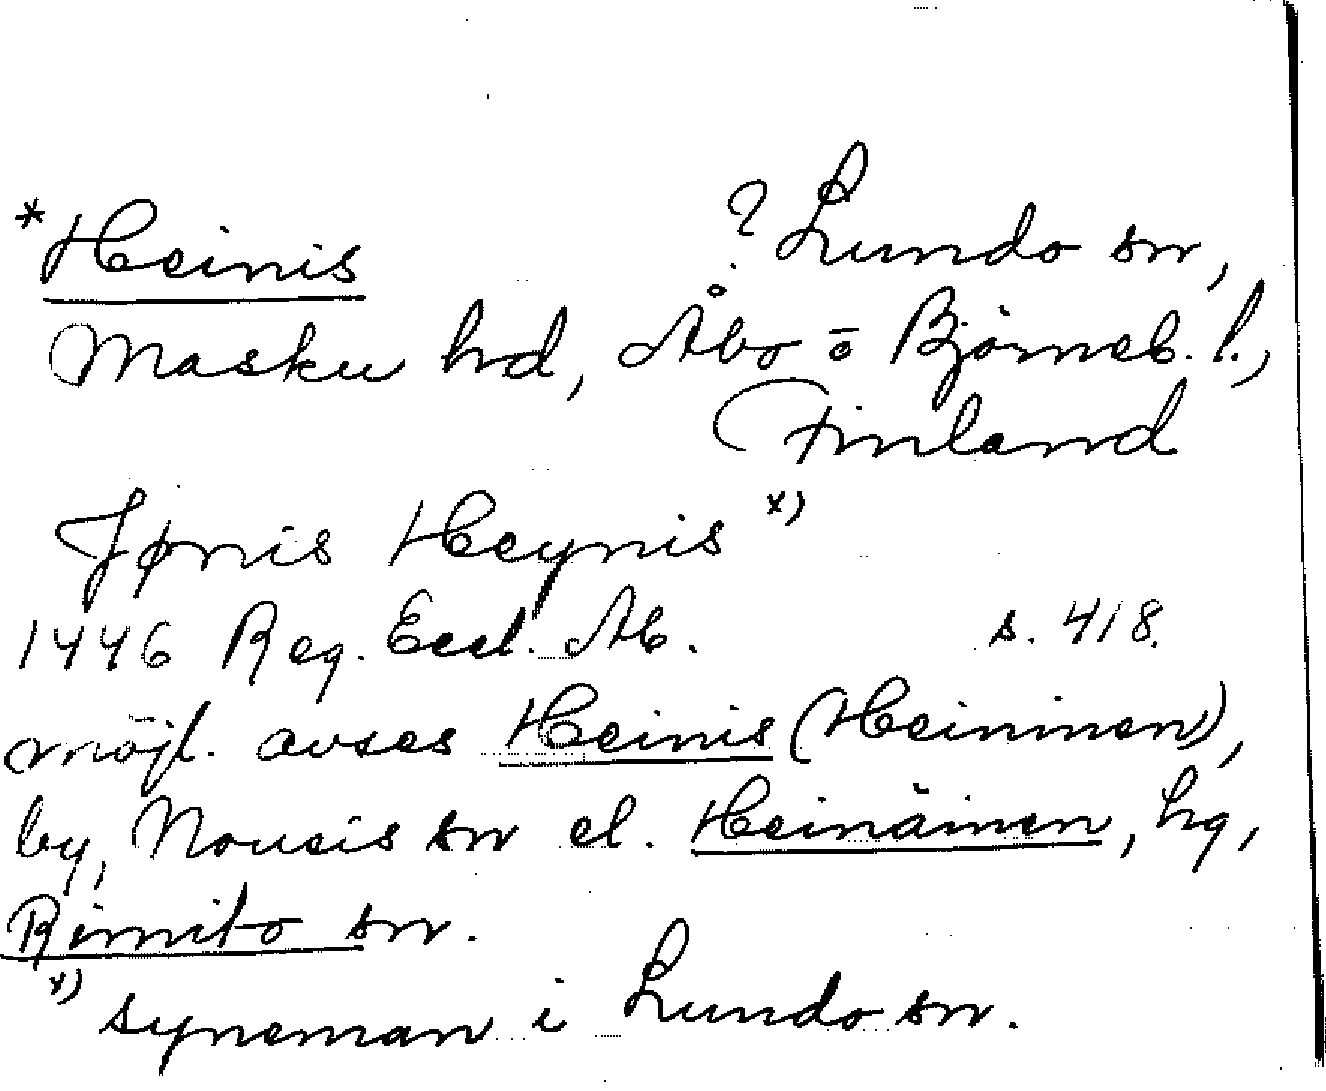 *Heinis ? Lundo sn,
Masku hd, Åbo o Björneb. l.,
Finland
Jønis Heynis x)
1446 Reg. Eccl. Ab. s. 418.
möjl. avses Heinis (Heininen),
by, Nousis sn el. Heinäinen, hg,
Rimito sn.
x) syneman i Lundo sn.